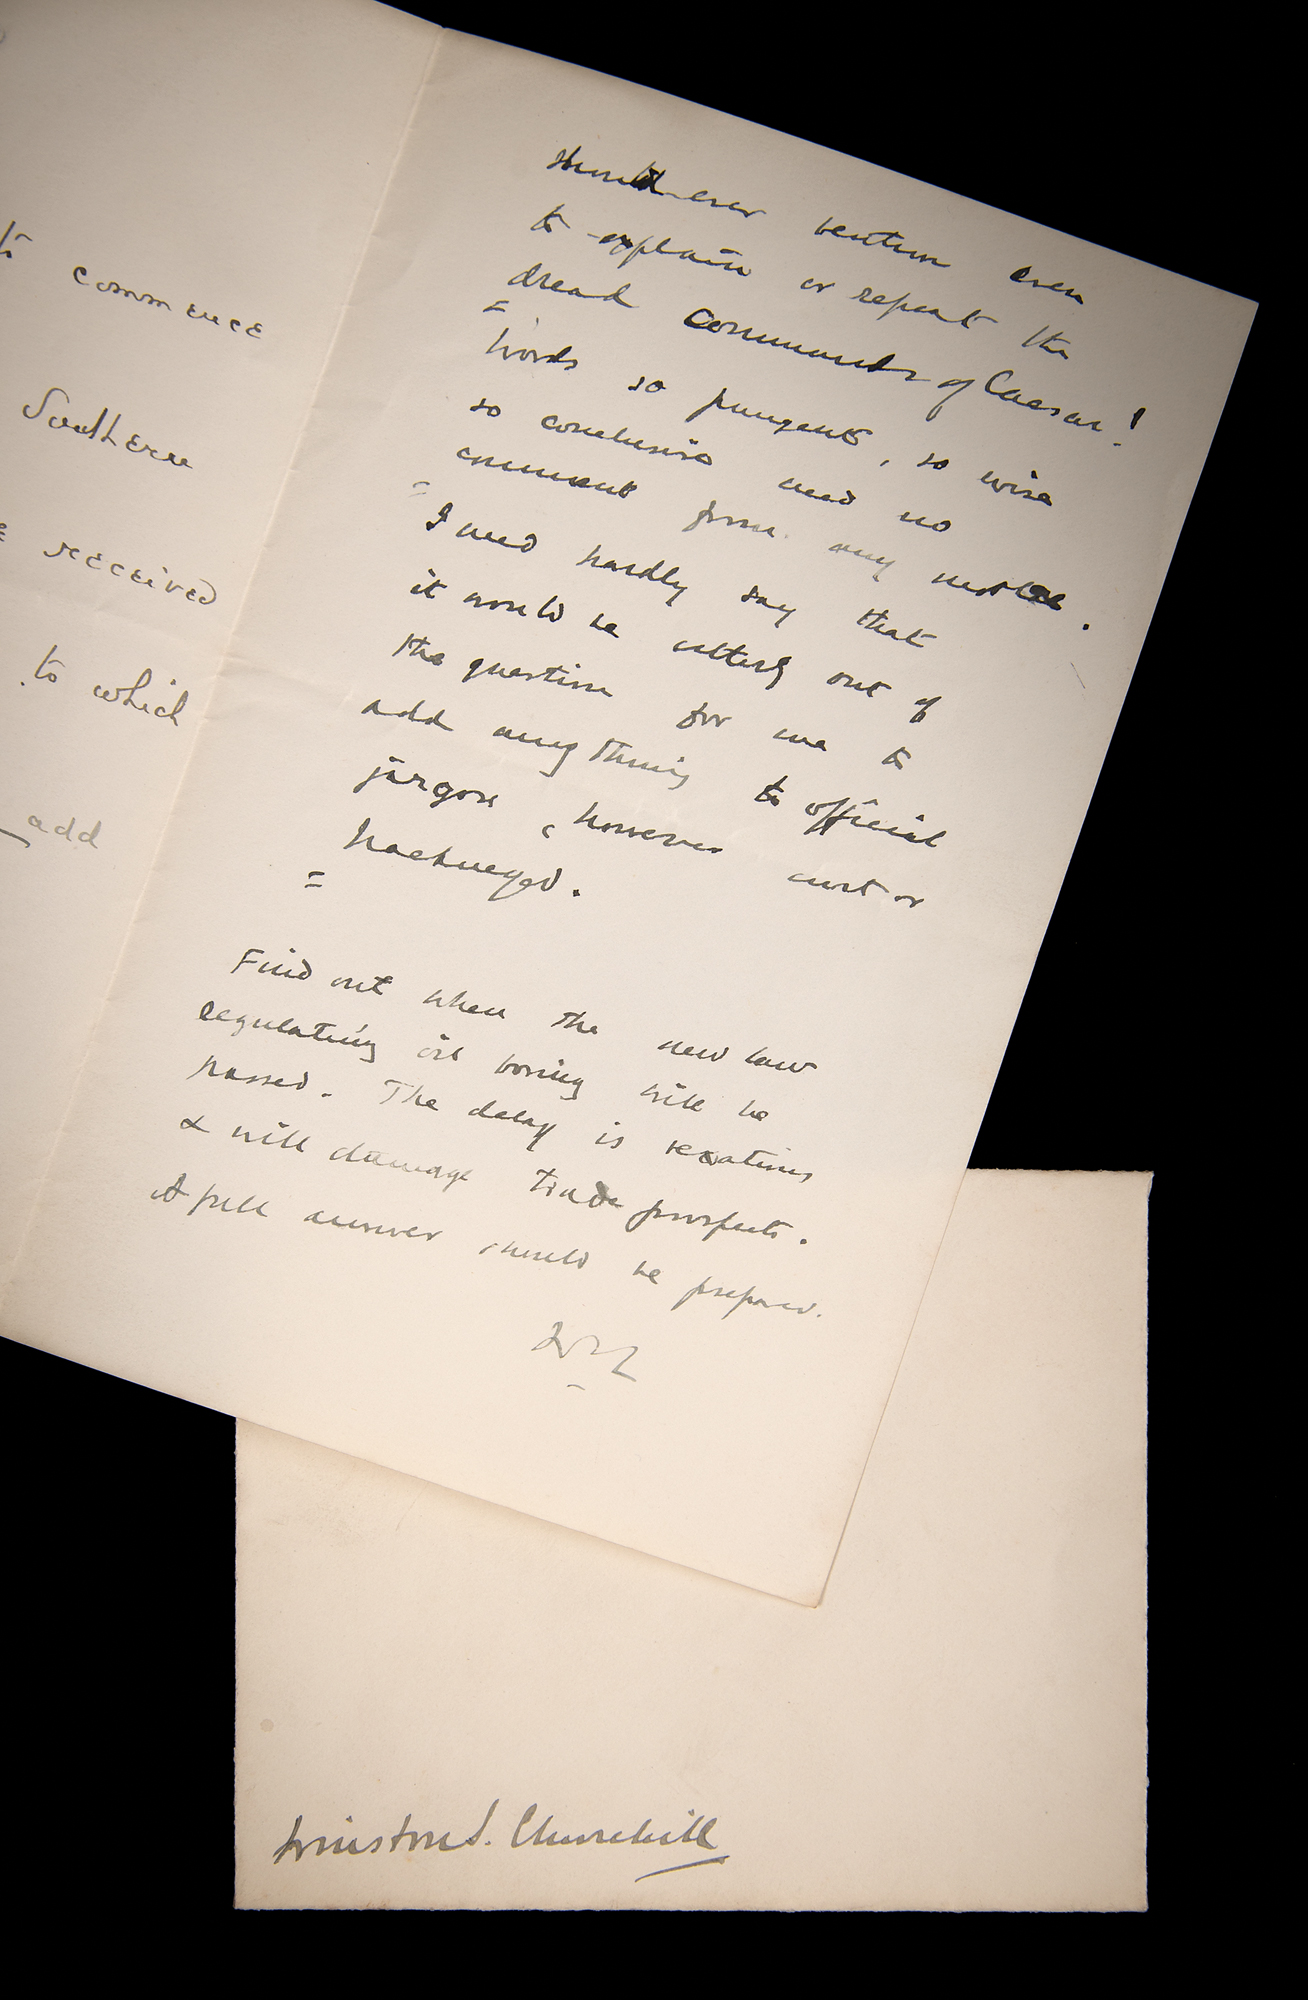 to commence
Southern
received
to which
add
should ever venture even
to explain or repeat the
dread commands of Caesar!
Words so pungent, so wise
so conclusive need no
comment from any mortal.
I need hardly say that
it would be utterly out of
the question for me to
add anything to official
jargon, however curt or
hackneyed.
Find out when the new law
regulating oil boring will be
passed. The delay is vexatious
& will damage trade prospects.
A full answer should be prepared.
WSC
Winston S. Churchill